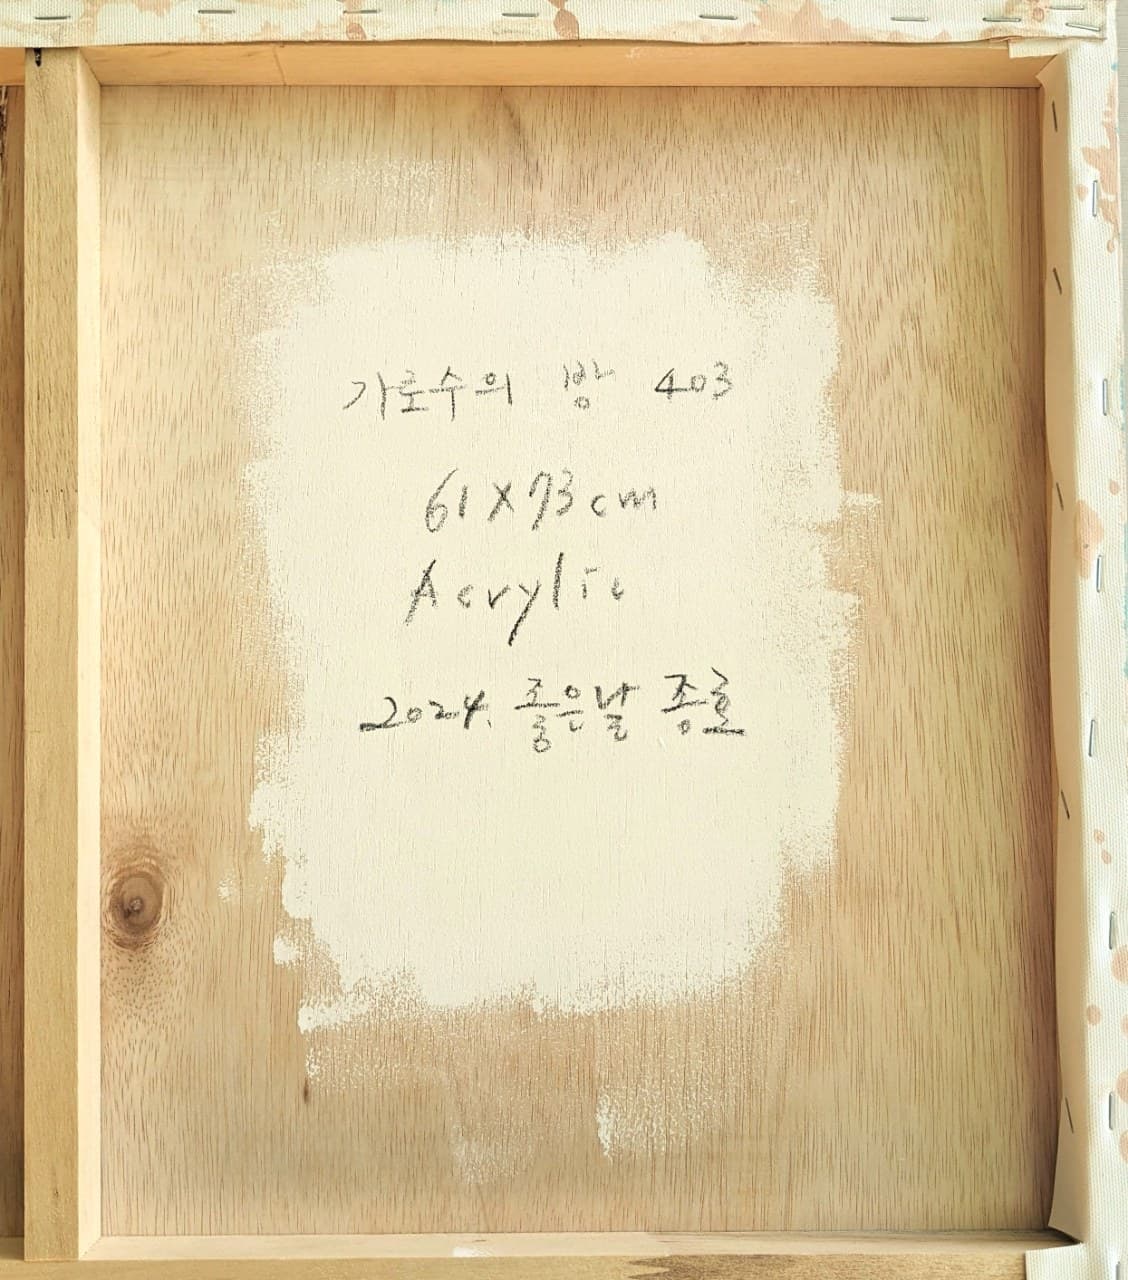 가로수의 방 403
61X73cm
Acrylic
2024. 좋은날 종호